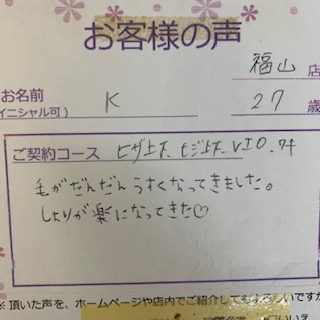 お客様の声
福山 店
お名前
イニシャル可) K 27 歳
ご契約コース ヒザ上下、ヒジ上下、VIO、
毛がだんだんうすくなってきました。
しょりが楽になってきた♡
※頂いた声を、ホームページや店内でご紹介してもよろしいですか
いいえ